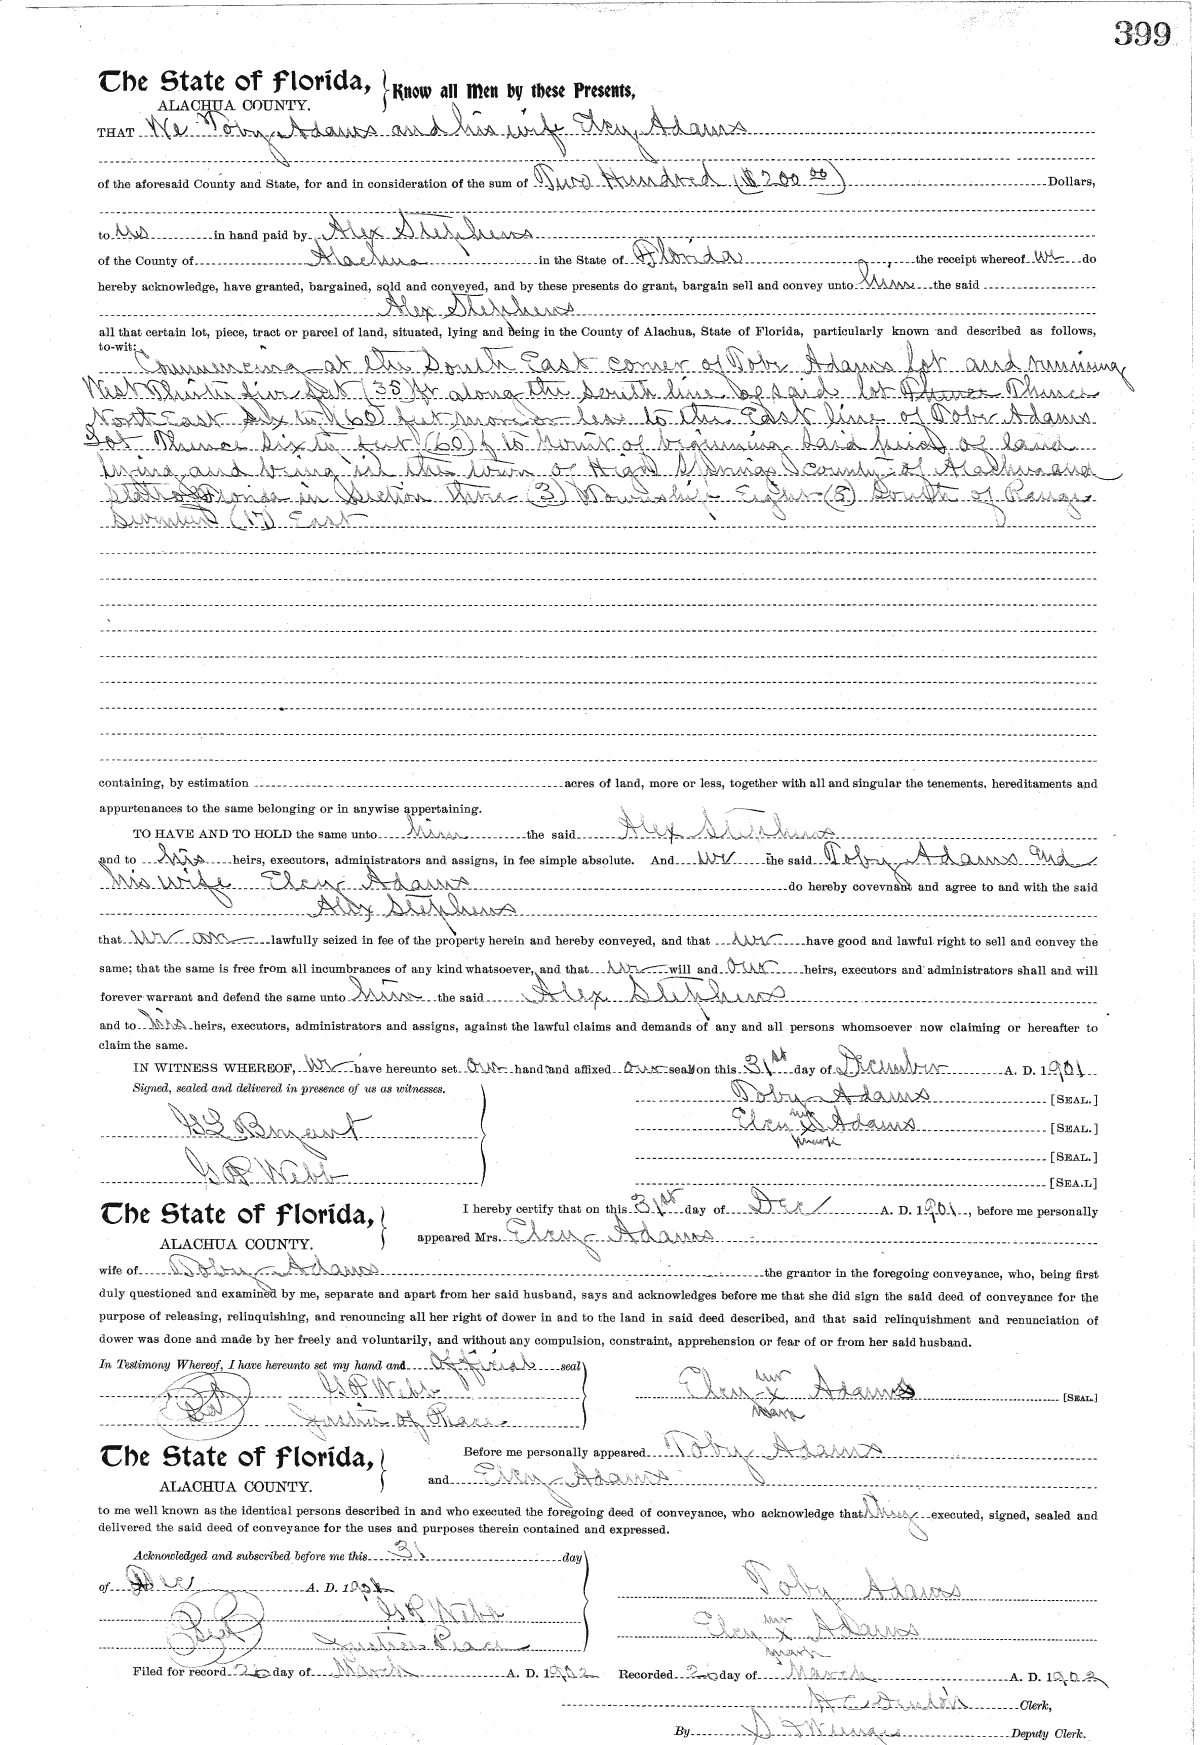 399
The State of Florida,
ALACHUA COUNTY.
Know all Men by these Presents,
THAT We Toby Adams and his wife Elcy Adams
of the aforesaid County and State, for and in consideration of the sum of Two Hundred ($200.00) Dollars,
to us in hand paid by Alex Stephens
of the County of Alachua in the State of Florida, the receipt whereof we do
hereby acknowledge, have granted, bargained, sold and conveyed, and by these presents do grant, bargain sell and convey unto him the said
Alex Stephens
all that certain lot, piece, tract or parcel of land, situated, lying and being in the County of Alachua, State of Florida, particularly known and described as follows,
to-wit:
Commencing at the South East corner of Toby Adams lot and running
West Thirty five feet (35 ft along the south line of said lot Thence
North East sixty (60) feet more or less to the East line of Toby Adams
Lot Thence sixty feet (60) f to Point of beginning Said piece of land
lying and being in the town of High Springs county of Alachua and
State of Florida in Section three (3) Township Eight (8) South of Range
Seventeen (17) East
containing, by estimation acres of land, more or less, together with all and singular the tenements, hereditaments and
appurtenances to the same belonging or in anywise appertaining.
TO HAVE AND TO HOLD the same unto him the said Alex Stephens
and to his heirs, executors, administrators and assigns, in fee simple absolute. And we the said Toby Adams and
his wife Elcy Adams do hereby covevnant and agree to and with the said
Alex Stephens
that we are lawfully seized in fee of the property herein and hereby conveyed, and that we have good and lawful right to sell and convey the
same; that the same is free from all incumbrances of any kind whatsoever, and that we will and our heirs, executors and administrators shall and will
forever warrant and defend the same unto him the said Alex Stephens
and to his heirs, executors, administrators and assigns, against the lawful claims and demands of any and all persons whomsoever now claiming or hereafter to
claim the same.
IN WITNESS WHEREOF, we have hereunto set our hand and affixed our seal on this 31st day of December A. D. 1901
Signed, sealed and delivered in presence of us as witnesses.
Toby Adams [SEAL.]
Bryant
Elcy her x Adams [SEAL.]
mark
[SEAL.]
G P Webb
[SEA.L]
The State of Florida,
ALACHUA COUNTY.
I hereby certify that on this 31st day of Dec A. D. 1901, before me personally
appeared Mrs. Elcy Adams
wife of Toby Adams the grantor in the foregoing conveyance, who, being first
duly questioned and examined by me, separate and apart from her said husband, says and acknowledges before me that she did sign the said deed of conveyance for the
purpose of releasing, relinquishing, and renouncing all her right of dower in and to the land in said deed described, and that said relinquishment and renunciation of
dower was done and made by her freely and voluntarily, and without any compulsion, constraint, apprehension or fear of or from her said husband.
In Testimony Whereof, I have hereunto set my hand and official seal
Seal G P Webb
Elcy her x Adams [SEAL.]
mark
Justice of Peace
The State of Florida,
ALACHUA COUNTY.
Before me personally appeared Toby Adams
and Elcy Adams
to me well known as the identical persons described in and who executed the foregoing deed of conveyance, who acknowledge that they executed, signed, sealed and
delivered the said deed of conveyance for the uses and purposes therein contained and expressed.
Acknowledged and subscribed before me this 31 day
of Dec A. D. 1901
Toby Adams
G P Webb
Seal Justice Peace
Elcy her x Adams
mark
Filed for record 26 day of March A. D. 1902 Recorded 26 day of March A. D. 1902
Clerk,
By Deputy Clerk.